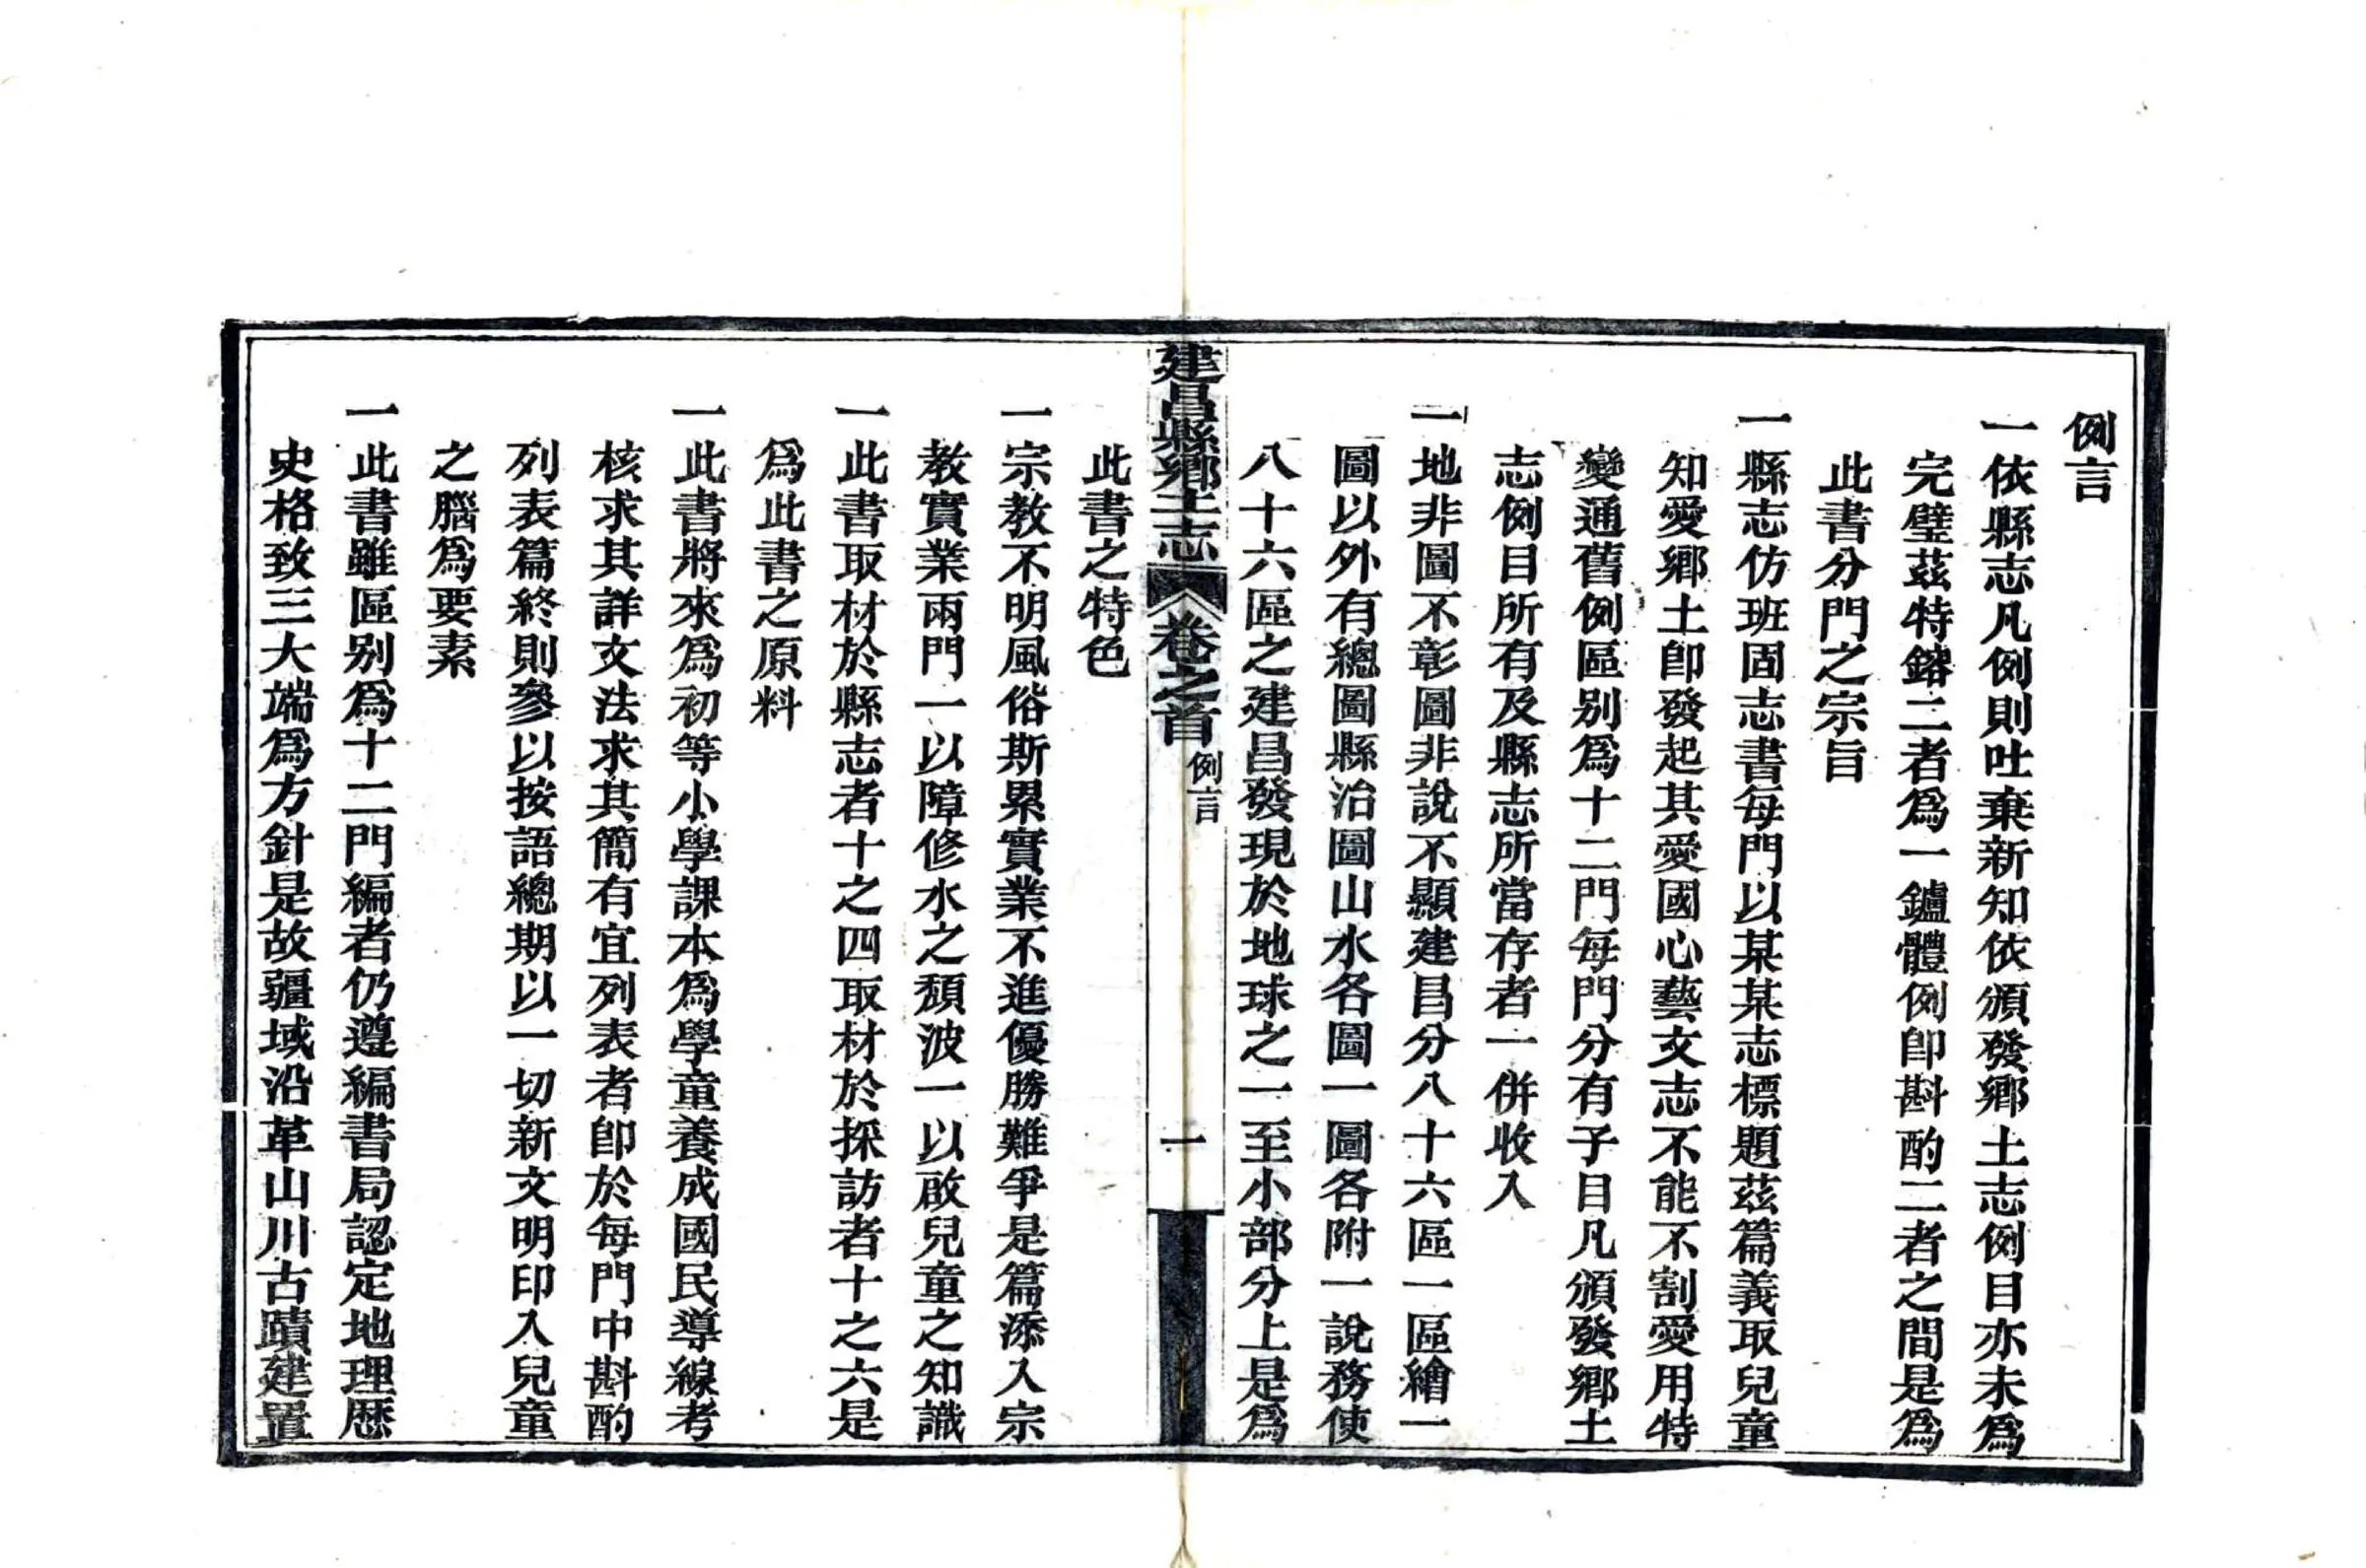 例言
一依縣志凡例則吐棄新知依頒發鄉土志例目亦未爲
完璧茲特鎔二者爲一鑪體例卽斟酌二者之間是爲
此書分門之宗旨
一縣志仿班固志書每門以某某志標題茲篇義取兒童
知愛鄉土卽發起其愛國心藝文志不能不割愛用特
變通舊例區別爲十二門每門分有子目凡頒發鄉土
志例目所有及縣志所當存者一併收入
一地非圖不彰圖非說不顯建昌分八十六區一區繪一
圖以外有總圖縣治圖山水各圖一圖各附一說務使
八十六區之建昌發現於地球之一至小部分上是爲
建昌縣鄉土志 卷之首 例言 一
此書之特色
一宗教不明風俗斯累實業不進優勝難爭是篇添入宗
教實業兩門一以障修水之頹波一以啟兒童之知識
一此書取材於縣志者十之四取材於採訪者十之六是
爲此書之原料
一此書將來爲初等小學課本爲學童養成國民導線考
核求其詳文法求其簡有宜列表者卽於每門中斟酌
列表篇終則參以按語總期以一切新文明印入兒童
之腦爲要素
一此書雖區別爲十二門編者仍遵編書局認定地理歷
史格致三大端爲方針是故疆域沿革山川古蹟建置